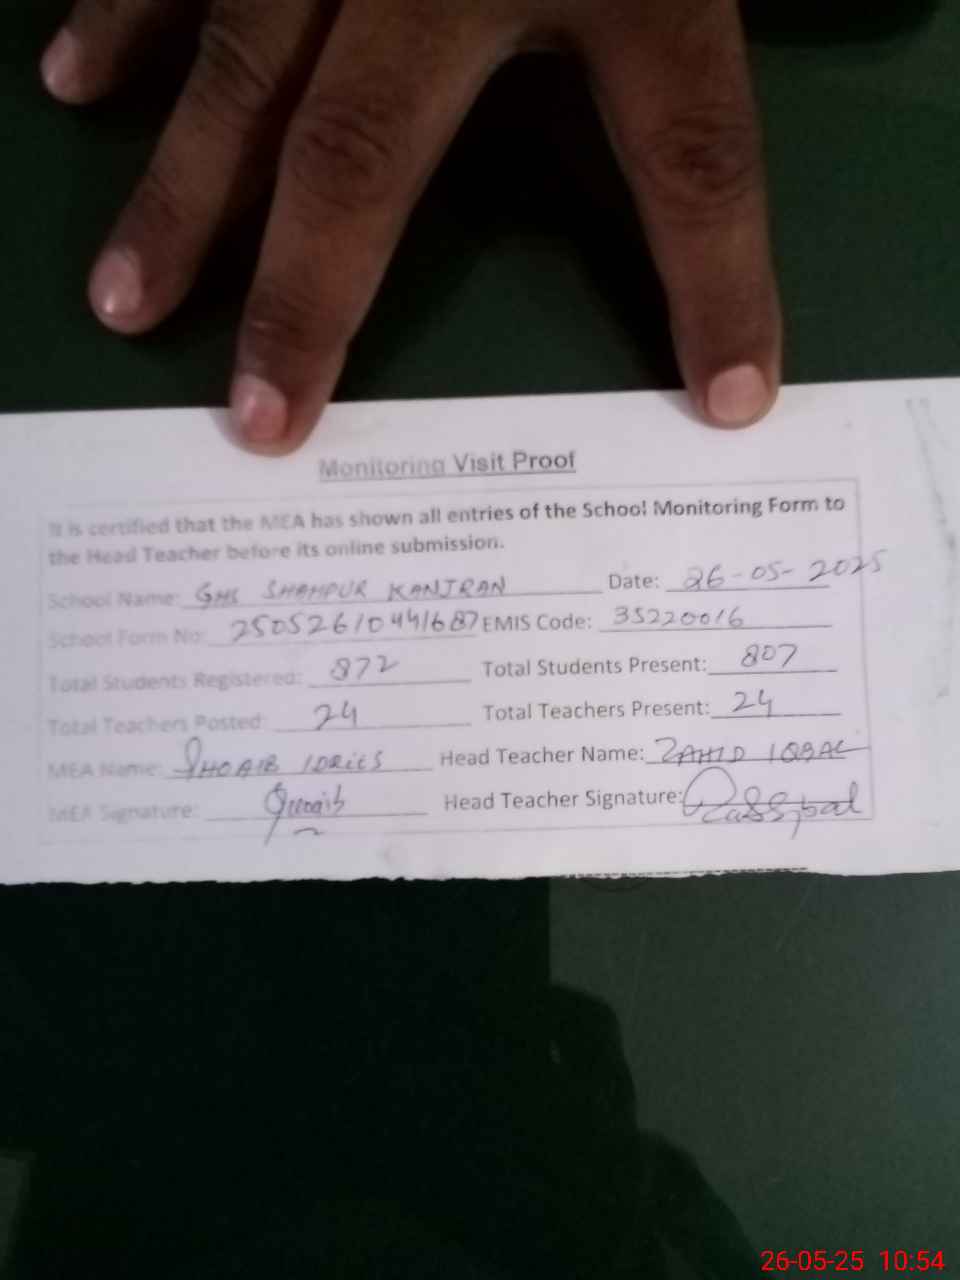 Monitoring Visit Proof
It is certified that the MEA has shown all entries of the School Monitoring Form to
the Head Teacher before its online submission.
School Name: GHS SHAHPUR KANJRAN Date: 26-05-2025
School Form No: 25052610441687 EMIS Code: 35220016
Total Students Registered: 872 Total Students Present: 807
Total Teachers Posted: 24 Total Teachers Present: 24
MEA Name: SHOAIB IDREES Head Teacher Name: ZAHID IQBAL
MEA Signature: Shoaib Head Teacher Signature:
26-05-25 10:54